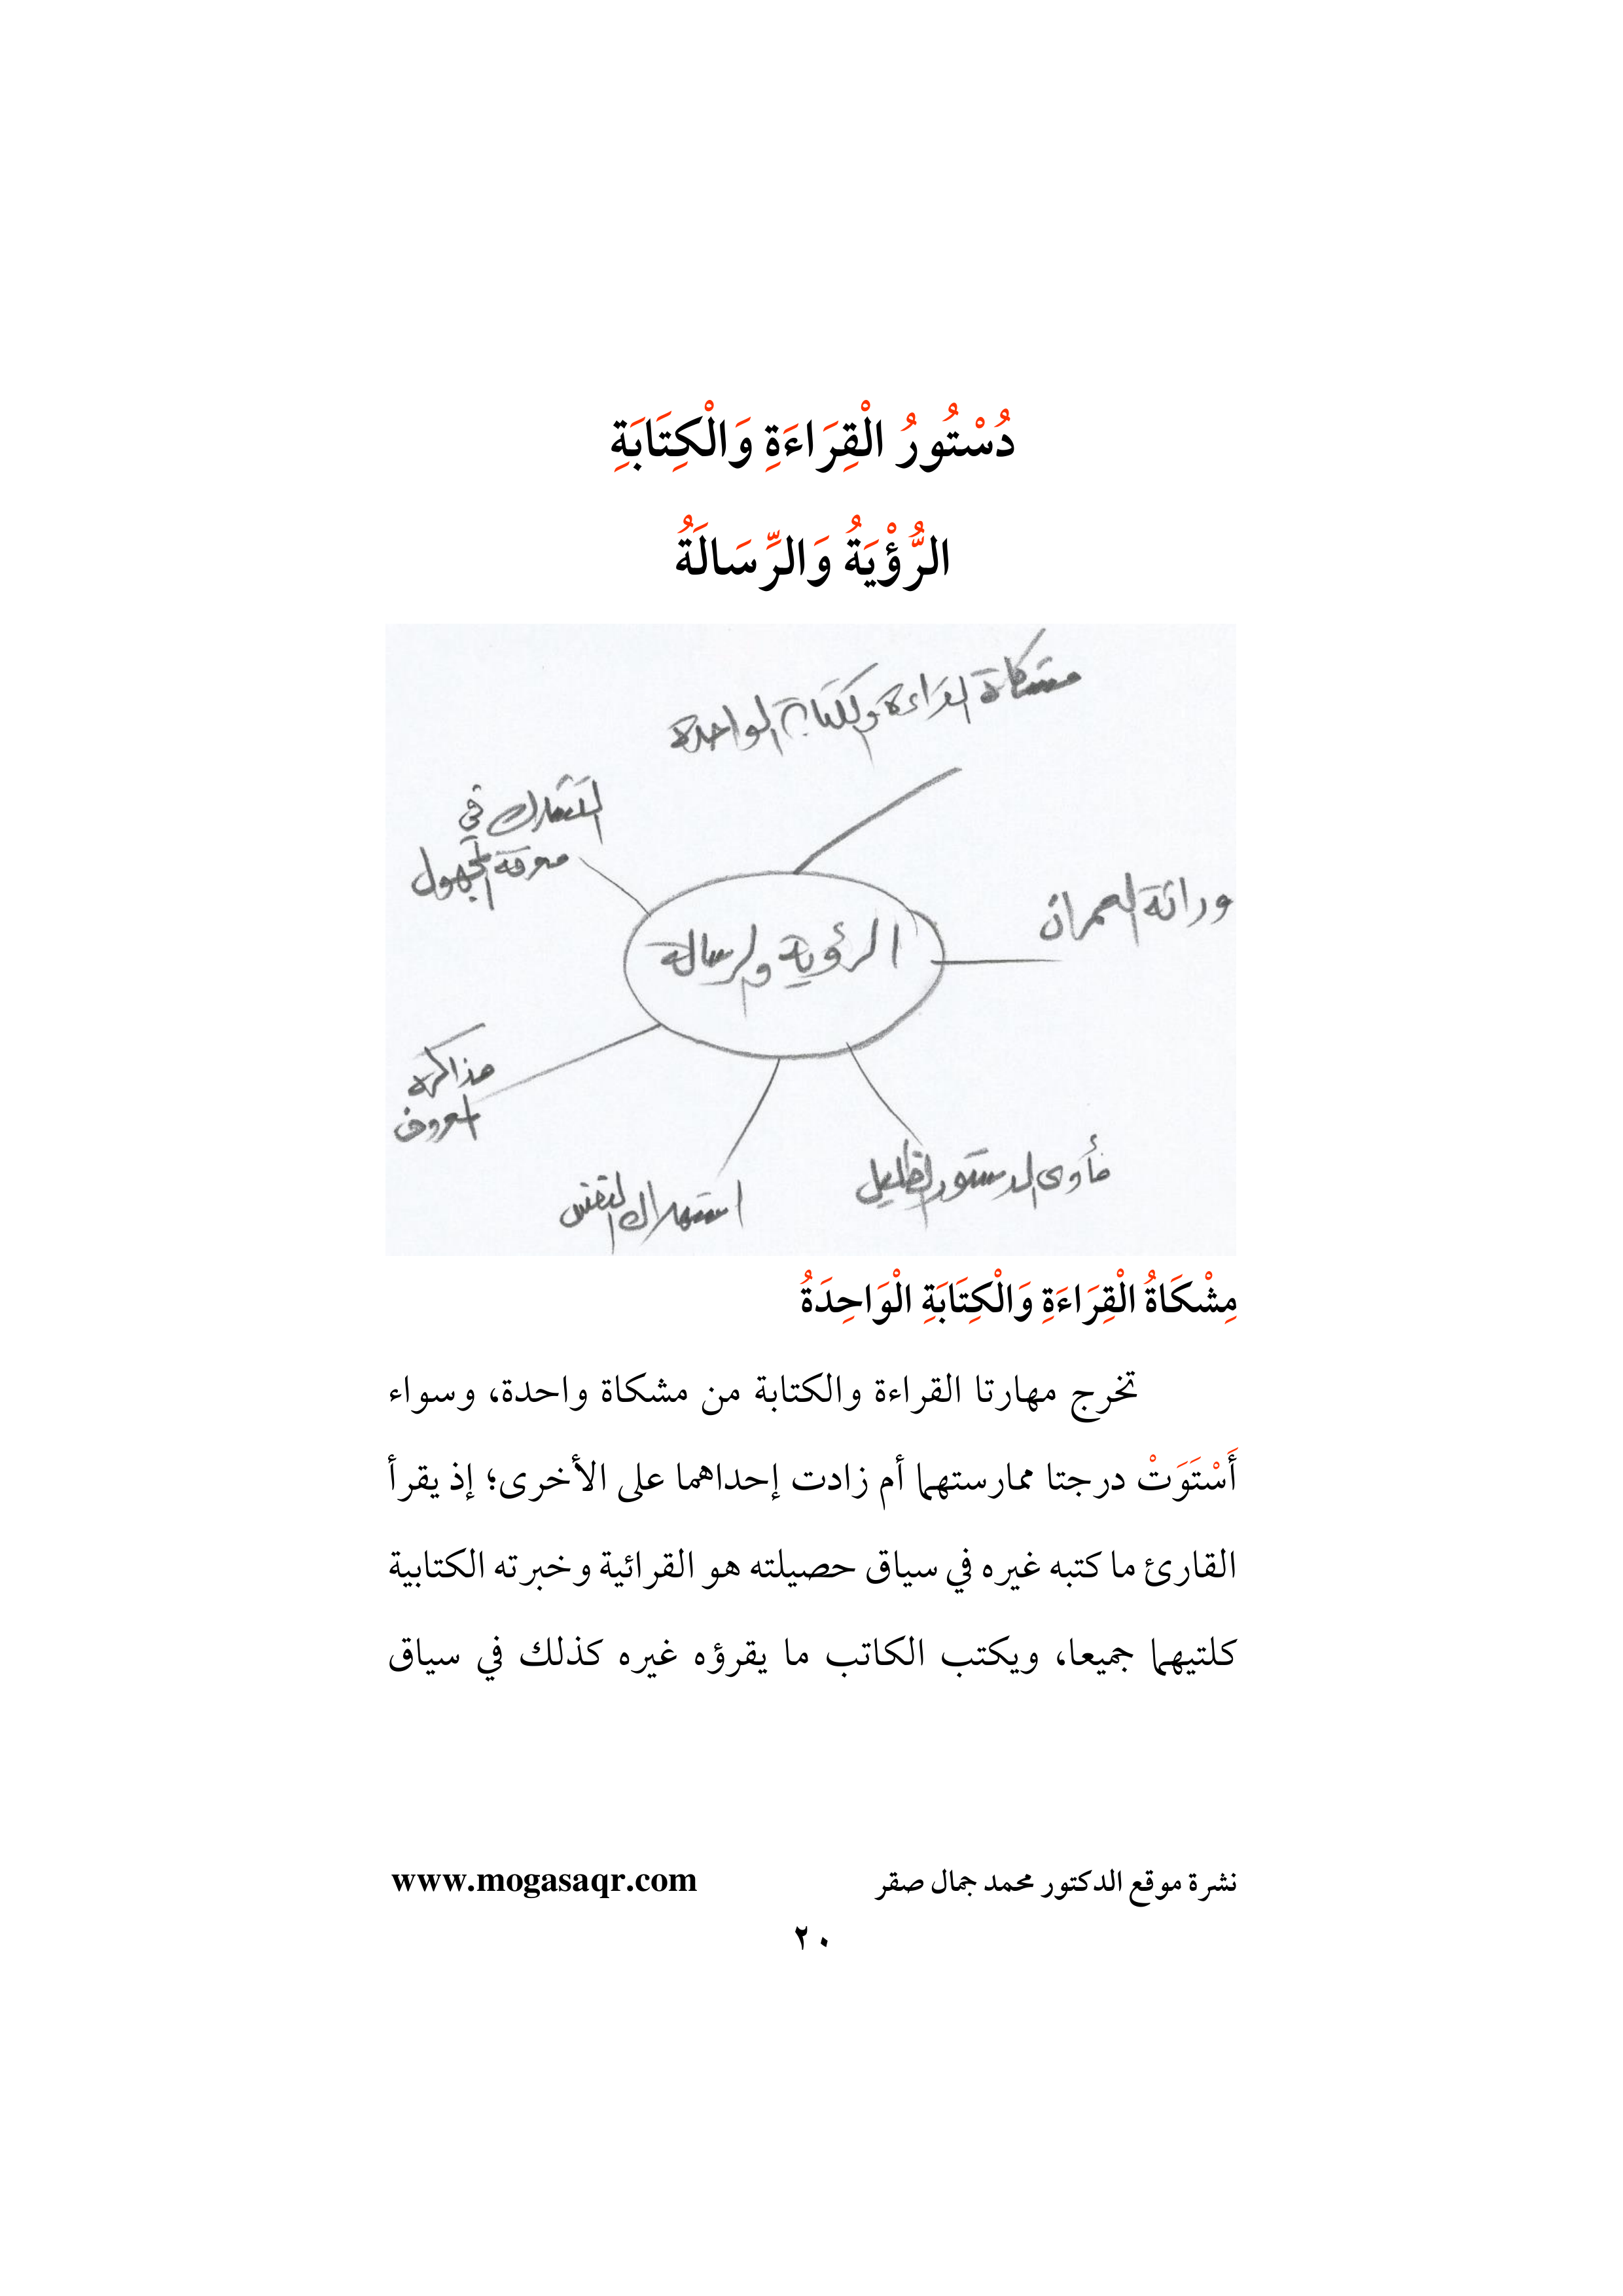 دُسْتُورُ الْقِرَاءَةِ وَالْكِتَابَةِ
الرُّؤْيَةُ وَالرِّسَالَةُ
مشكاة القراءة والكتابة الواحدة
وراثة العمران
مأوى الدستور الظليل
استهلاك النفس
مذاكرة
المعروف
التشارك في
معرفة المجهول
الرؤية والرسالة
مِشْكَاةُ الْقِرَاءَةِ وَالْكِتَابَةِ الْوَاحِدَةُ
تخرج مهارتا القراءة والكتابة من مشكاة واحدة، وسواء
أَسْتَوَتْ درجتا ممارستهما أم زادت إحداهما على الأخرى؛ إذ يقرأ
القارئ ما كتبه غيره في سياق حصيلته هو القرائية وخبرته الكتابية
كلتيهما جميعا، ويكتب الكاتب ما يقرؤه غيره كذلك في سياق
نشرة موقع الدكتور محمد جمال صقر www.mogasaqr.com
٢٠